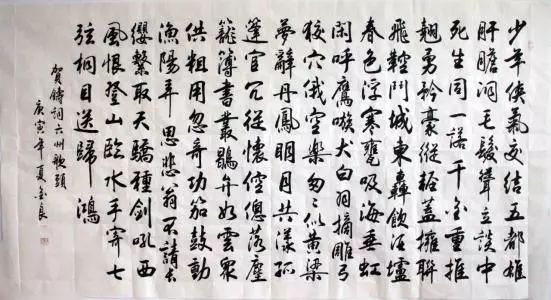 少年俠氣交結五都雄
肝膽洞毛髮聳立談中
死生同一諾千金重推
翹勇矜豪縱輕蓋擁聯
飛鞚鬥城東轟飲酒壚
春色浮寒甕吸海垂虹
閑呼鷹嗾犬白羽摘雕弓
狡穴俄空樂匆匆似黃粱
夢辭丹鳳明月共漾孤
蓬官冗從懷倥傯落塵
籠簿書叢鶡弁如雲眾
供粗用忽奇功笳鼓動
漁陽弄思悲翁不請長
纓繫取天驕種劍吼西
風恨登山臨水手寄七
弦桐目送歸鴻
賀鑄詞六州歌頭
庚寅年夏金良